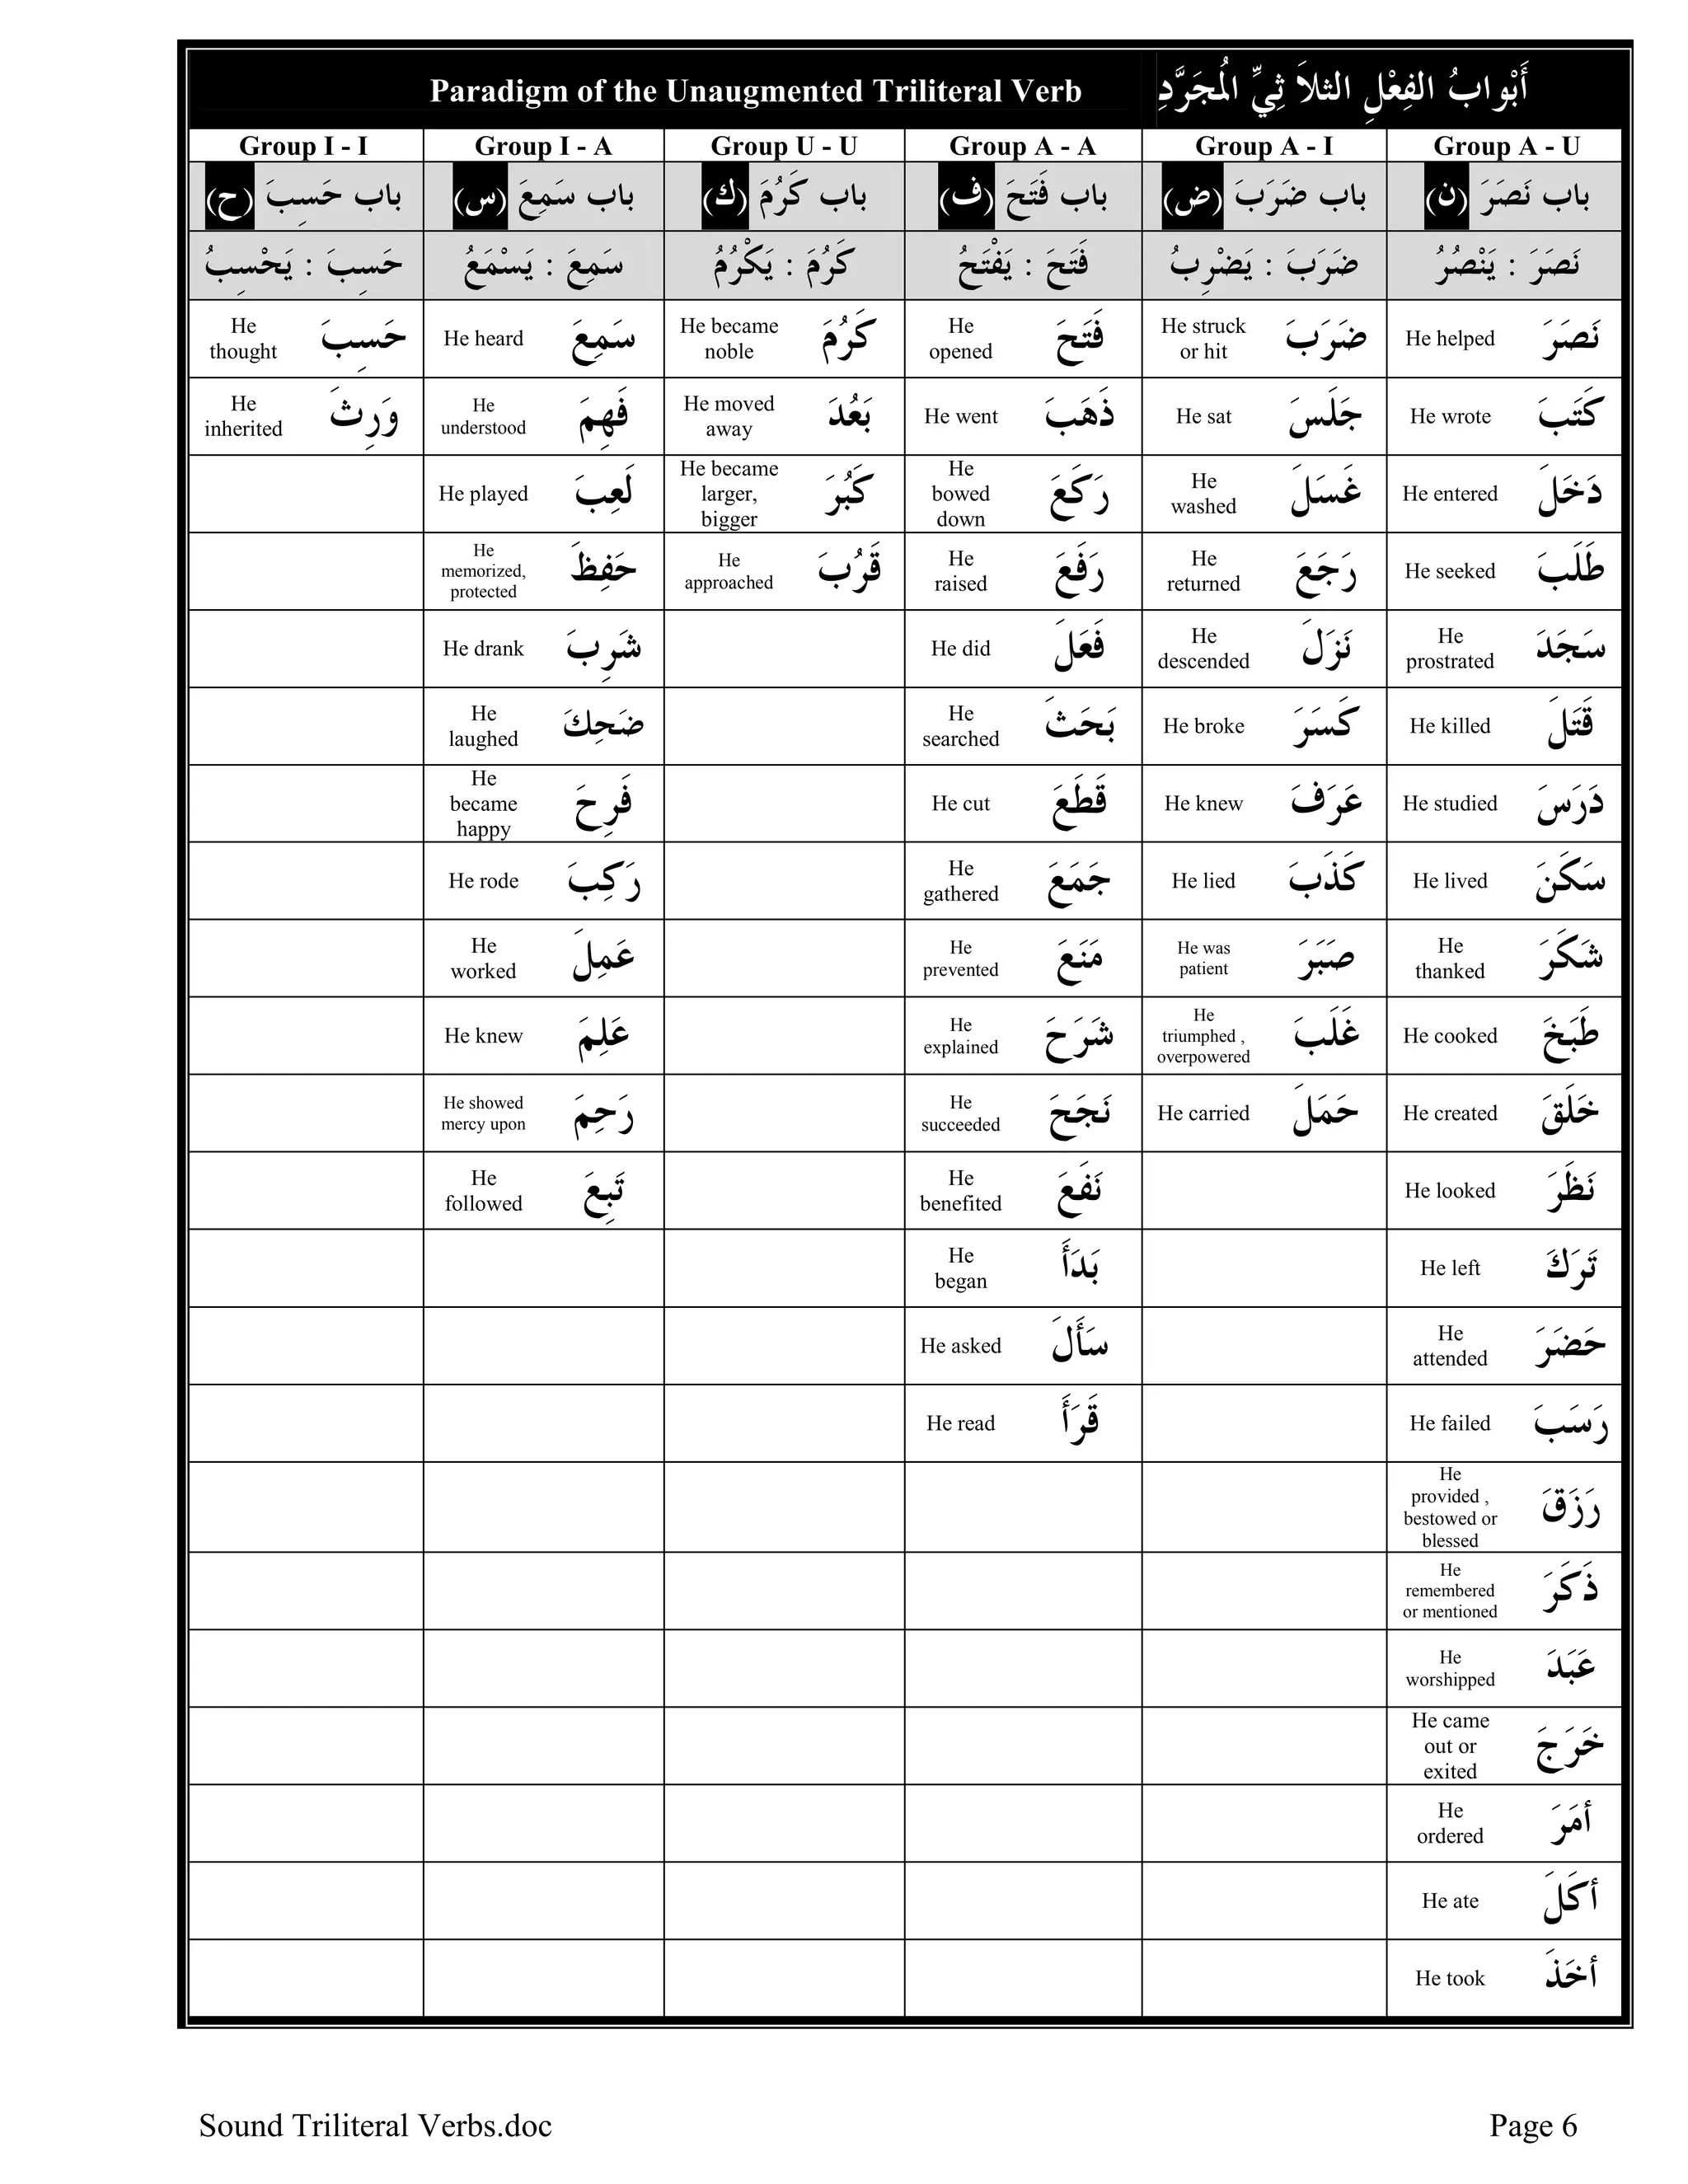 Paradigm of the Unaugmented Triliteral Verb أَبْوابُ الفِعْلِ الثلاَ ثِيِّ الْمُجَرَّدِ
Group I - I Group I - A Group U - U Group A - A Group A - I Group A - U
باب حَسِبَ (ح) باب سَمِعَ (س) باب كَرُمَ (ك) باب فَتَحَ (ف) باب ضَرَبَ (ض) باب نَصَرَ (ن)
حَسِبَ : يَحْسِبُ سَمِعَ : يَسْمَعُ كَرُمَ : يَكْرُمُ فَتَحَ : يَفْتَحُ ضَرَبَ : يَضْرِبُ نَصَرَ : يَنْصُرُ
He thought حَسِبَ He heard سَمِعَ He became noble كَرُمَ He opened فَتَحَ He struck or hit ضَرَبَ He helped نَصَرَ
He inherited وَرِثَ He understood فَهِمَ He moved away بَعُدَ He went ذَهَبَ He sat جَلَسَ He wrote كَتَبَ
He played لَعِبَ He became larger, bigger كَبُرَ He bowed down رَكَعَ He washed غَسَلَ He entered دَخَلَ
He memorized, protected حَفِظَ He approached قَرُبَ He raised رَفَعَ He returned رَجَعَ He seeked طَلَبَ
He drank شَرِبَ He did فَعَلَ He descended نَزَلَ He prostrated سَجَدَ
He laughed ضَحِكَ He searched بَحَثَ He broke كَسَرَ He killed قَتَلَ
He became happy فَرِحَ He cut قَطَعَ He knew عَرَفَ He studied دَرَسَ
He rode رَكِبَ He gathered جَمَعَ He lied كَذَبَ He lived سَكَنَ
He worked عَمِلَ He prevented مَنَعَ He was patient صَبَرَ He thanked شَكَرَ
He knew عَلِمَ He explained شَرَحَ He triumphed , overpowered غَلَبَ He cooked طَبَخَ
He showed mercy upon رَحِمَ He succeeded نَجَحَ He carried حَمَلَ He created خَلَقَ
He followed تَبِعَ He benefited نَفَعَ He looked نَظَرَ
He began بَدَأَ He left تَرَكَ
He asked سَأَلَ He attended حَضَرَ
He read قَرَأَ He failed رَسَبَ
He provided , bestowed or blessed رَزَقَ
He remembered or mentioned ذَكَرَ
He worshipped عَبَدَ
He came out or exited خَرَجَ
He ordered أمَرَ
He ate أكَلَ
He took أخَذَ
Sound Triliteral Verbs.doc Page 6